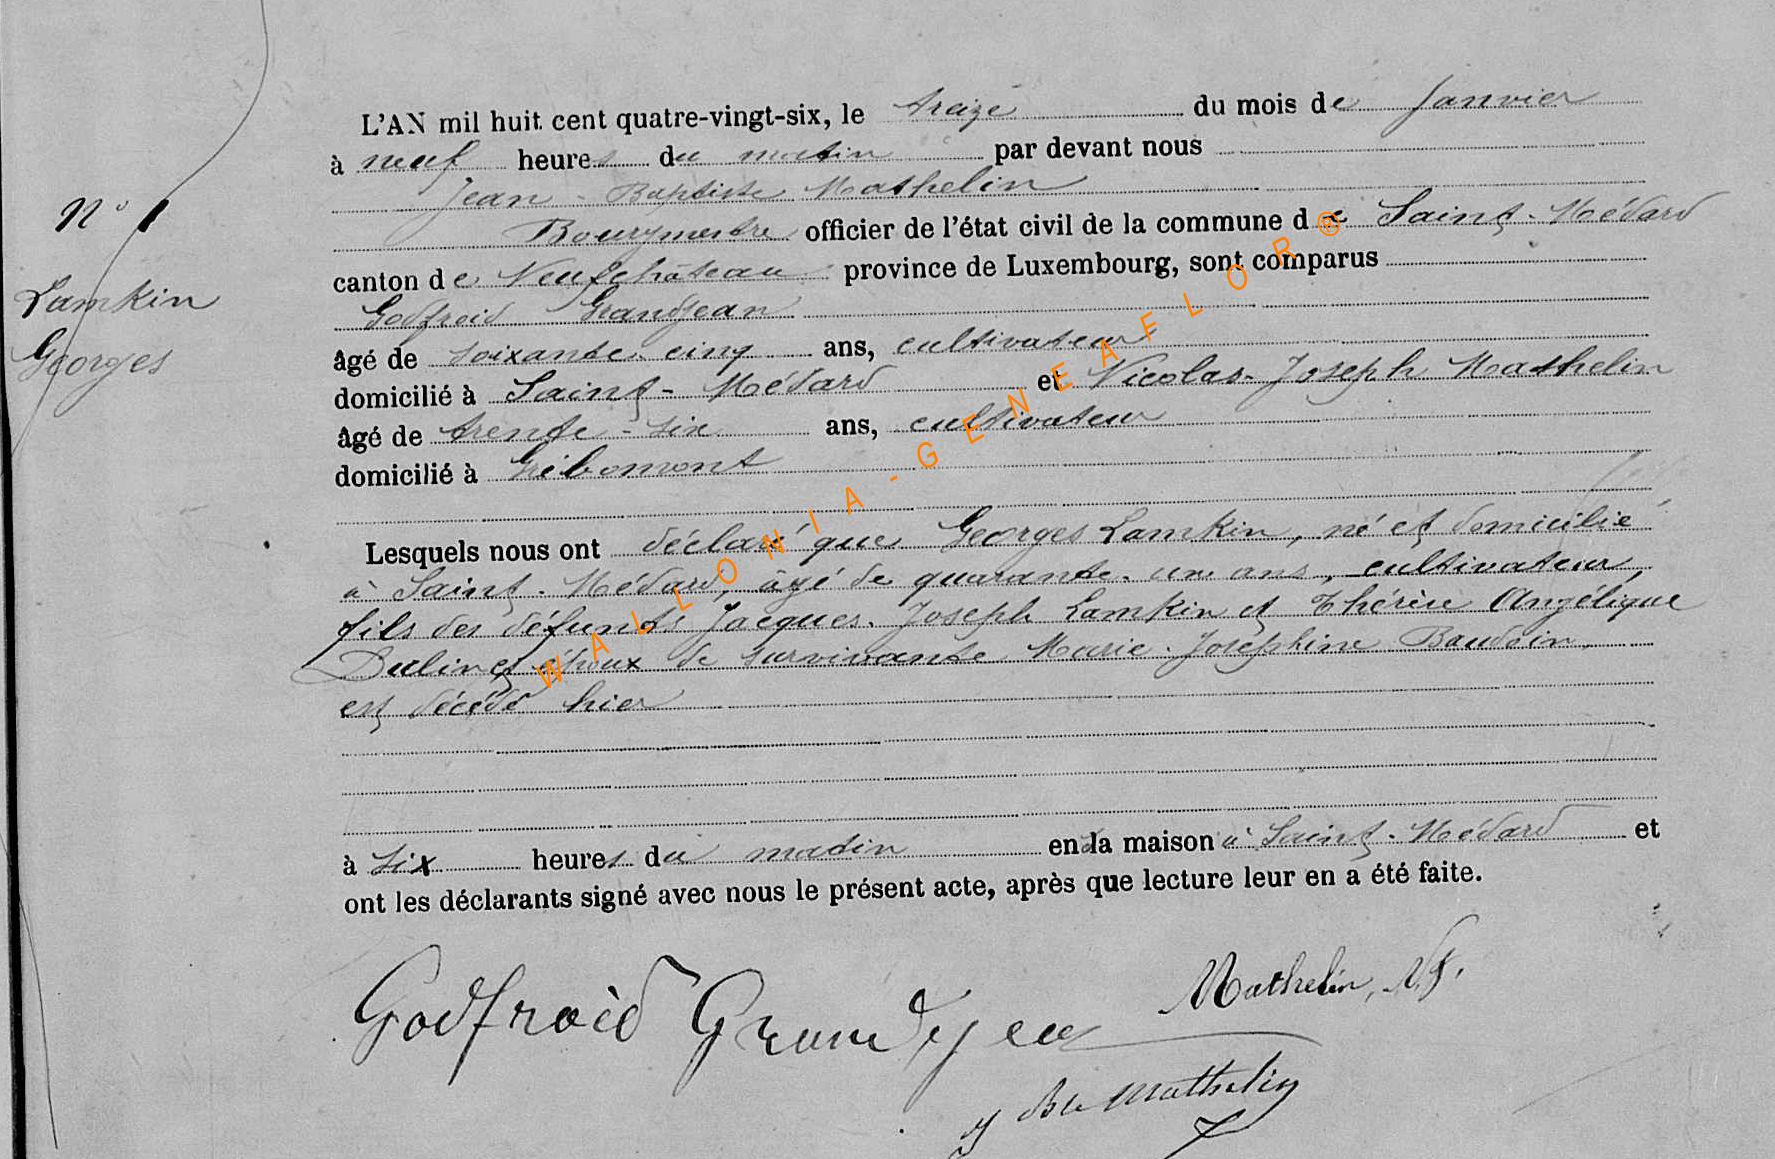 L'AN mil huit cent quatre-vingt-six, le treize du mois de Janvier
à neuf heures du matin par devant nous
Jean-Baptiste Mathelin
Nº 1
Bourgmestre officier de l'état civil de la commune de Saint-Médard
canton de Neufchâteau province de Luxembourg, sont comparus
Lamkin
Godfroid Grandjean
Georges
âgé de soixante-cinq ans, cultivateur
domicilié à Saint-Médard et Nicolas-Joseph Mathelin
âgé de trente-six ans, cultivateur
domicilié à Gribomont
Lesquels nous ont déclaré que Georges Lamkin, né et domicilié
à Saint-Médard, âgé de quarante-un ans, cultivateur,
fils des défunts Jacques-Joseph Lamkin et Thérèse Angélique
Dulin et époux de survivante Marie-Joséphine Baudoin,
est décédé hier
à six heures du matin en la maison à Saint-Médard et
ont les déclarants signé avec nous le présent acte, après que lecture leur en a été faite.
Godfroid Grandjean
Mathelin, N.J.
J Bte Mathelin
WALLONIA-GENEAFLOR®